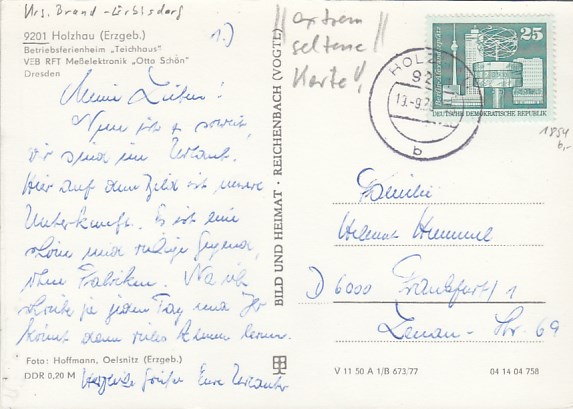 Krs. Brand-Erbisdorf
9201 Holzhau (Erzgeb.)
Betriebsferienheim „Teichhaus"
VEB RFT Meßelektronik „Otto Schön"
Dresden
1.)
Meine Lieben!
Nun ist es soweit,
wir sind im Urlaub.
Hier auf dem Bild ist unsere
Unterkunft. Es ist eine
schöne und ruhige Gegend,
ohne Fabriken. Na ich
schreibe ja jeden Tag und Ihr
könnt dann vieles lernen.
Herzliche Grüße Eure Urlauber
Foto: Hoffmann, Oelsnitz (Erzgeb.)
DDR 0,20 M
BILD UND HEIMAT · REICHENBACH (VOGTL)
extrem
seltene
Karte!
HOLZHAU
b
25
DEUTSCHE DEMOKRATISCHE REPUBLIK
1854
6,-
Familie
Helmut Hummel
D 6000 Frankfurt/1
Lenau-Str. 69
V 11 50 A 1/B 673/77
04 14 04 758